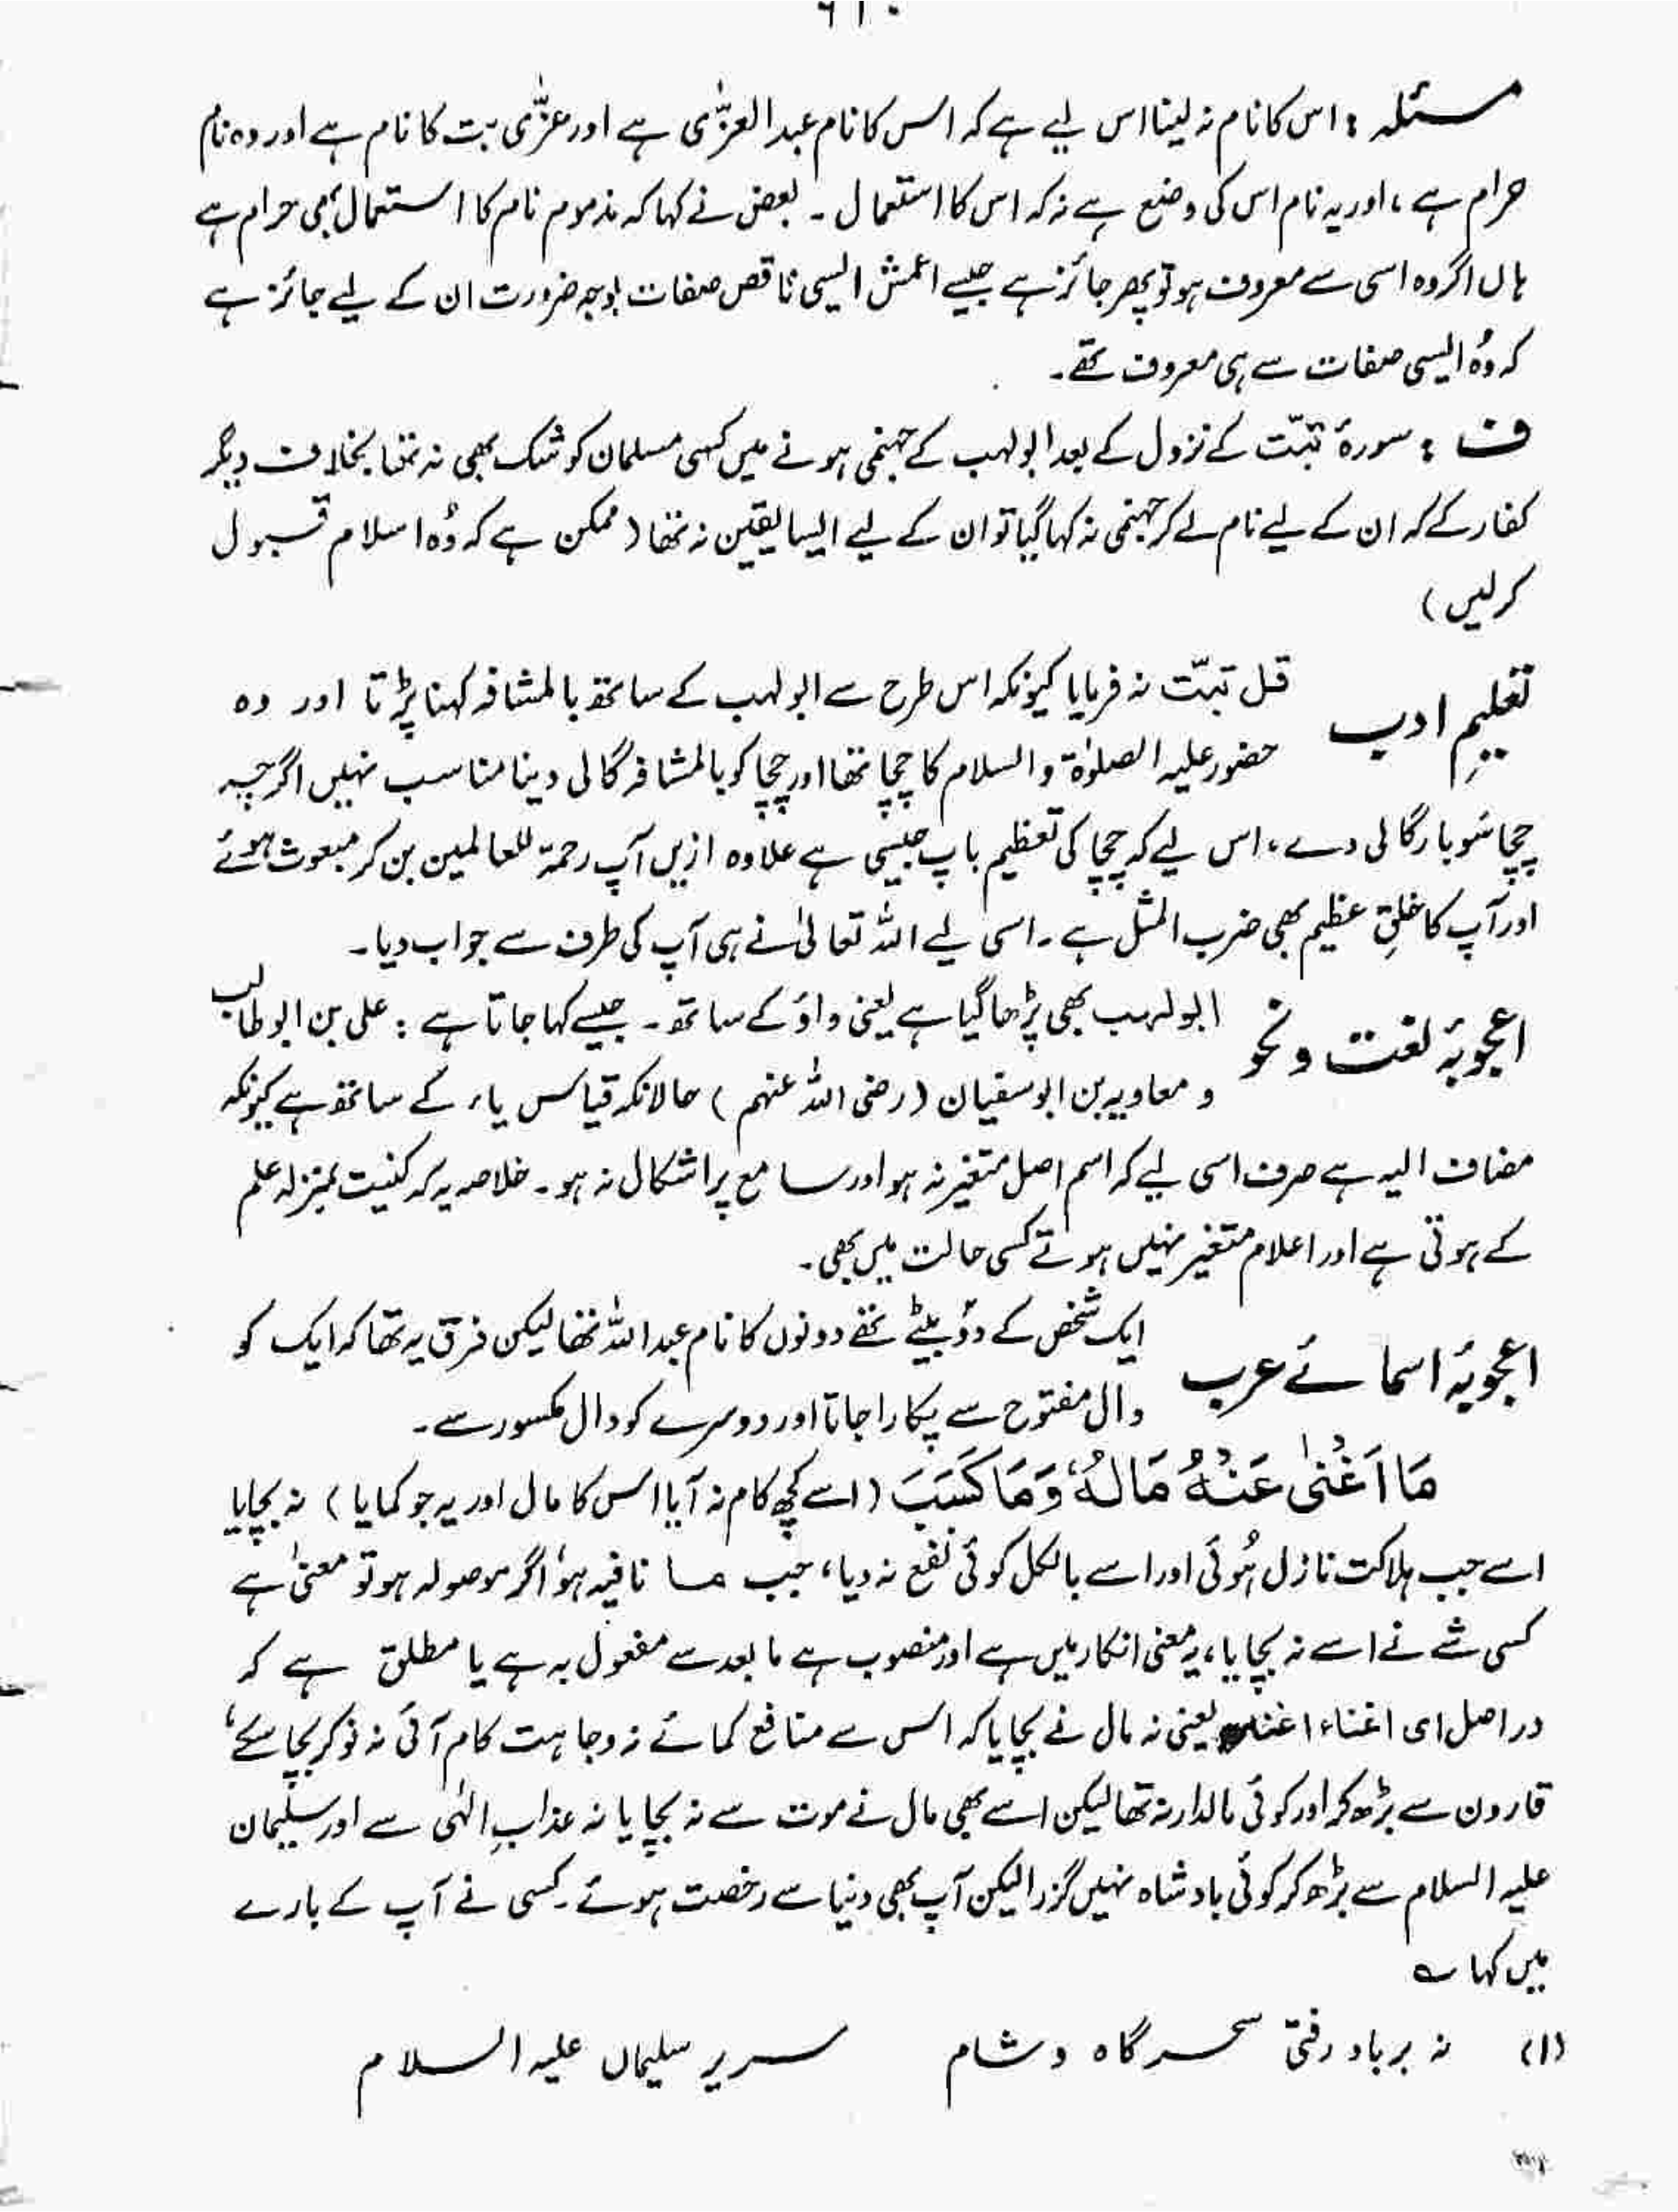 ۶۱۰
مسئلہ : اس کا نام نہ لینا اس لیے ہے کہ اس کا نام عبد العزّٰی ہے اور عزّٰی بت کا نام ہے اور وہ نام
حرام ہے ، اور یہ نام اس کی وضع ہے نہ کہ اس کا استعمال ۔ بعض نے کہا کہ مذموم نام کا استعمال بھی حرام ہے
ہاں اگر وہ اسی سے معروف ہو تو پھر جائز ہے جیسے اعمش ایسی ناقص صفات بوجہ ضرورت ان کے لیے جائز ہے
کہ وُہ ایسی صفات سے ہی معروف تھے ۔
ف : سورۂ تبّت کے نزول کے بعد ابولہب کے جہنمی ہونے میں کسی مسلمان کو شک بھی نہ تھا بخلاف دیگر
کفار کے کہ ان کے لیے نام لے کر جہنمی نہ کہا گیا تو ان کے لیے ایسا یقین نہ تھا ( ممکن ہے کہ وُہ اسلام قبول
کرلیں )
تعلیمِ ادب قل تبّت نہ فرمایا کیونکہ اس طرح سے ابولہب کے ساتھ بالمشافہ کہنا پڑتا اور وہ
حضور علیہ الصلوٰۃ والسلام کا چچا تھا اور چچا کو بالمشافہ گالی دینا مناسب نہیں اگرچہ
چچا سَو بار گالی دے ، اس لیے کہ چچا کی تعظیم باپ جیسی ہے علاوہ ازیں آپ رحمۃ للعالمین بن کر مبعوث ہوئے
اور آپ کا خلقِ عظیم بھی ضرب المثل ہے ۔ اسی لیے اللہ تعالیٰ نے ہی آپ کی طرف سے جواب دیا ۔
اعجوبۂ لغت و نحو ابولہب بھی پڑھا گیا ہے یعنی واؤ کے ساتھ ۔ جیسے کہا جاتا ہے : علی بن ابوطالب
و معاویہ بن ابوسفیان ( رضی اللہ عنہم ) حالانکہ قیاس یاء کے ساتھ ہے کیونکہ
مضاف الیہ ہے صرف اسی لیے کہ اسم اصل متغیر نہ ہو اور سامع پر اشکال نہ ہو ۔ خلاصہ یہ کہ کنیت بمنزلہ علم
کے ہوتی ہے اور اعلام متغیر نہیں ہوتے کسی حالت میں بھی ۔
اعجوبۂ اسمائے عرب ایک شخص کے دوؔ بیٹے تھے دونوں کا نام عبد اللہ تھا لیکن فرق یہ تھا کہ ایک کو
دال مفتوح سے پکارا جاتا اور دوسرے کو دال مکسور سے ۔
مَا اَغْنٰی عَنْہُ مَالُہٗ وَمَا کَسَبَ ( اسے کچھ کام نہ آیا اس کا مال اور یہ جو کمایا ) نہ بچایا
اسے جب ہلاکت نازل ہُوئی اور اسے بالکل کوئی نفع نہ دیا ، جب ما نافیہ ہو اگر موصولہ ہو تو معنٰی ہے
کسی شے نے اسے نہ بچایا ، یہ معنی انکار میں ہے اور منصوب ہے مابعد سے مفعول بہ ہے یا مطلق ہے کہ
دراصل ای اغناء اغناہ یعنی نہ مال نے بچایا کہ اس سے منافع کمائے نہ وجاہت کام آئی نہ نوکر بچا سکے ،
قارون سے بڑھ کر اور کوئی مالدار نہ تھا لیکن اسے بھی مال نے موت سے نہ بچایا نہ عذابِ الٰہی سے اور سلیمان
علیہ السلام سے بڑھ کر کوئی بادشاہ نہیں گزرا لیکن آپ بھی دنیا سے رخصت ہوئے ۔ کسی نے آپ کے بارے
میں کہا ؎
(۱) نہ برباد رفتی سحر گاہ و شام سریر سلیماں علیہ السلام